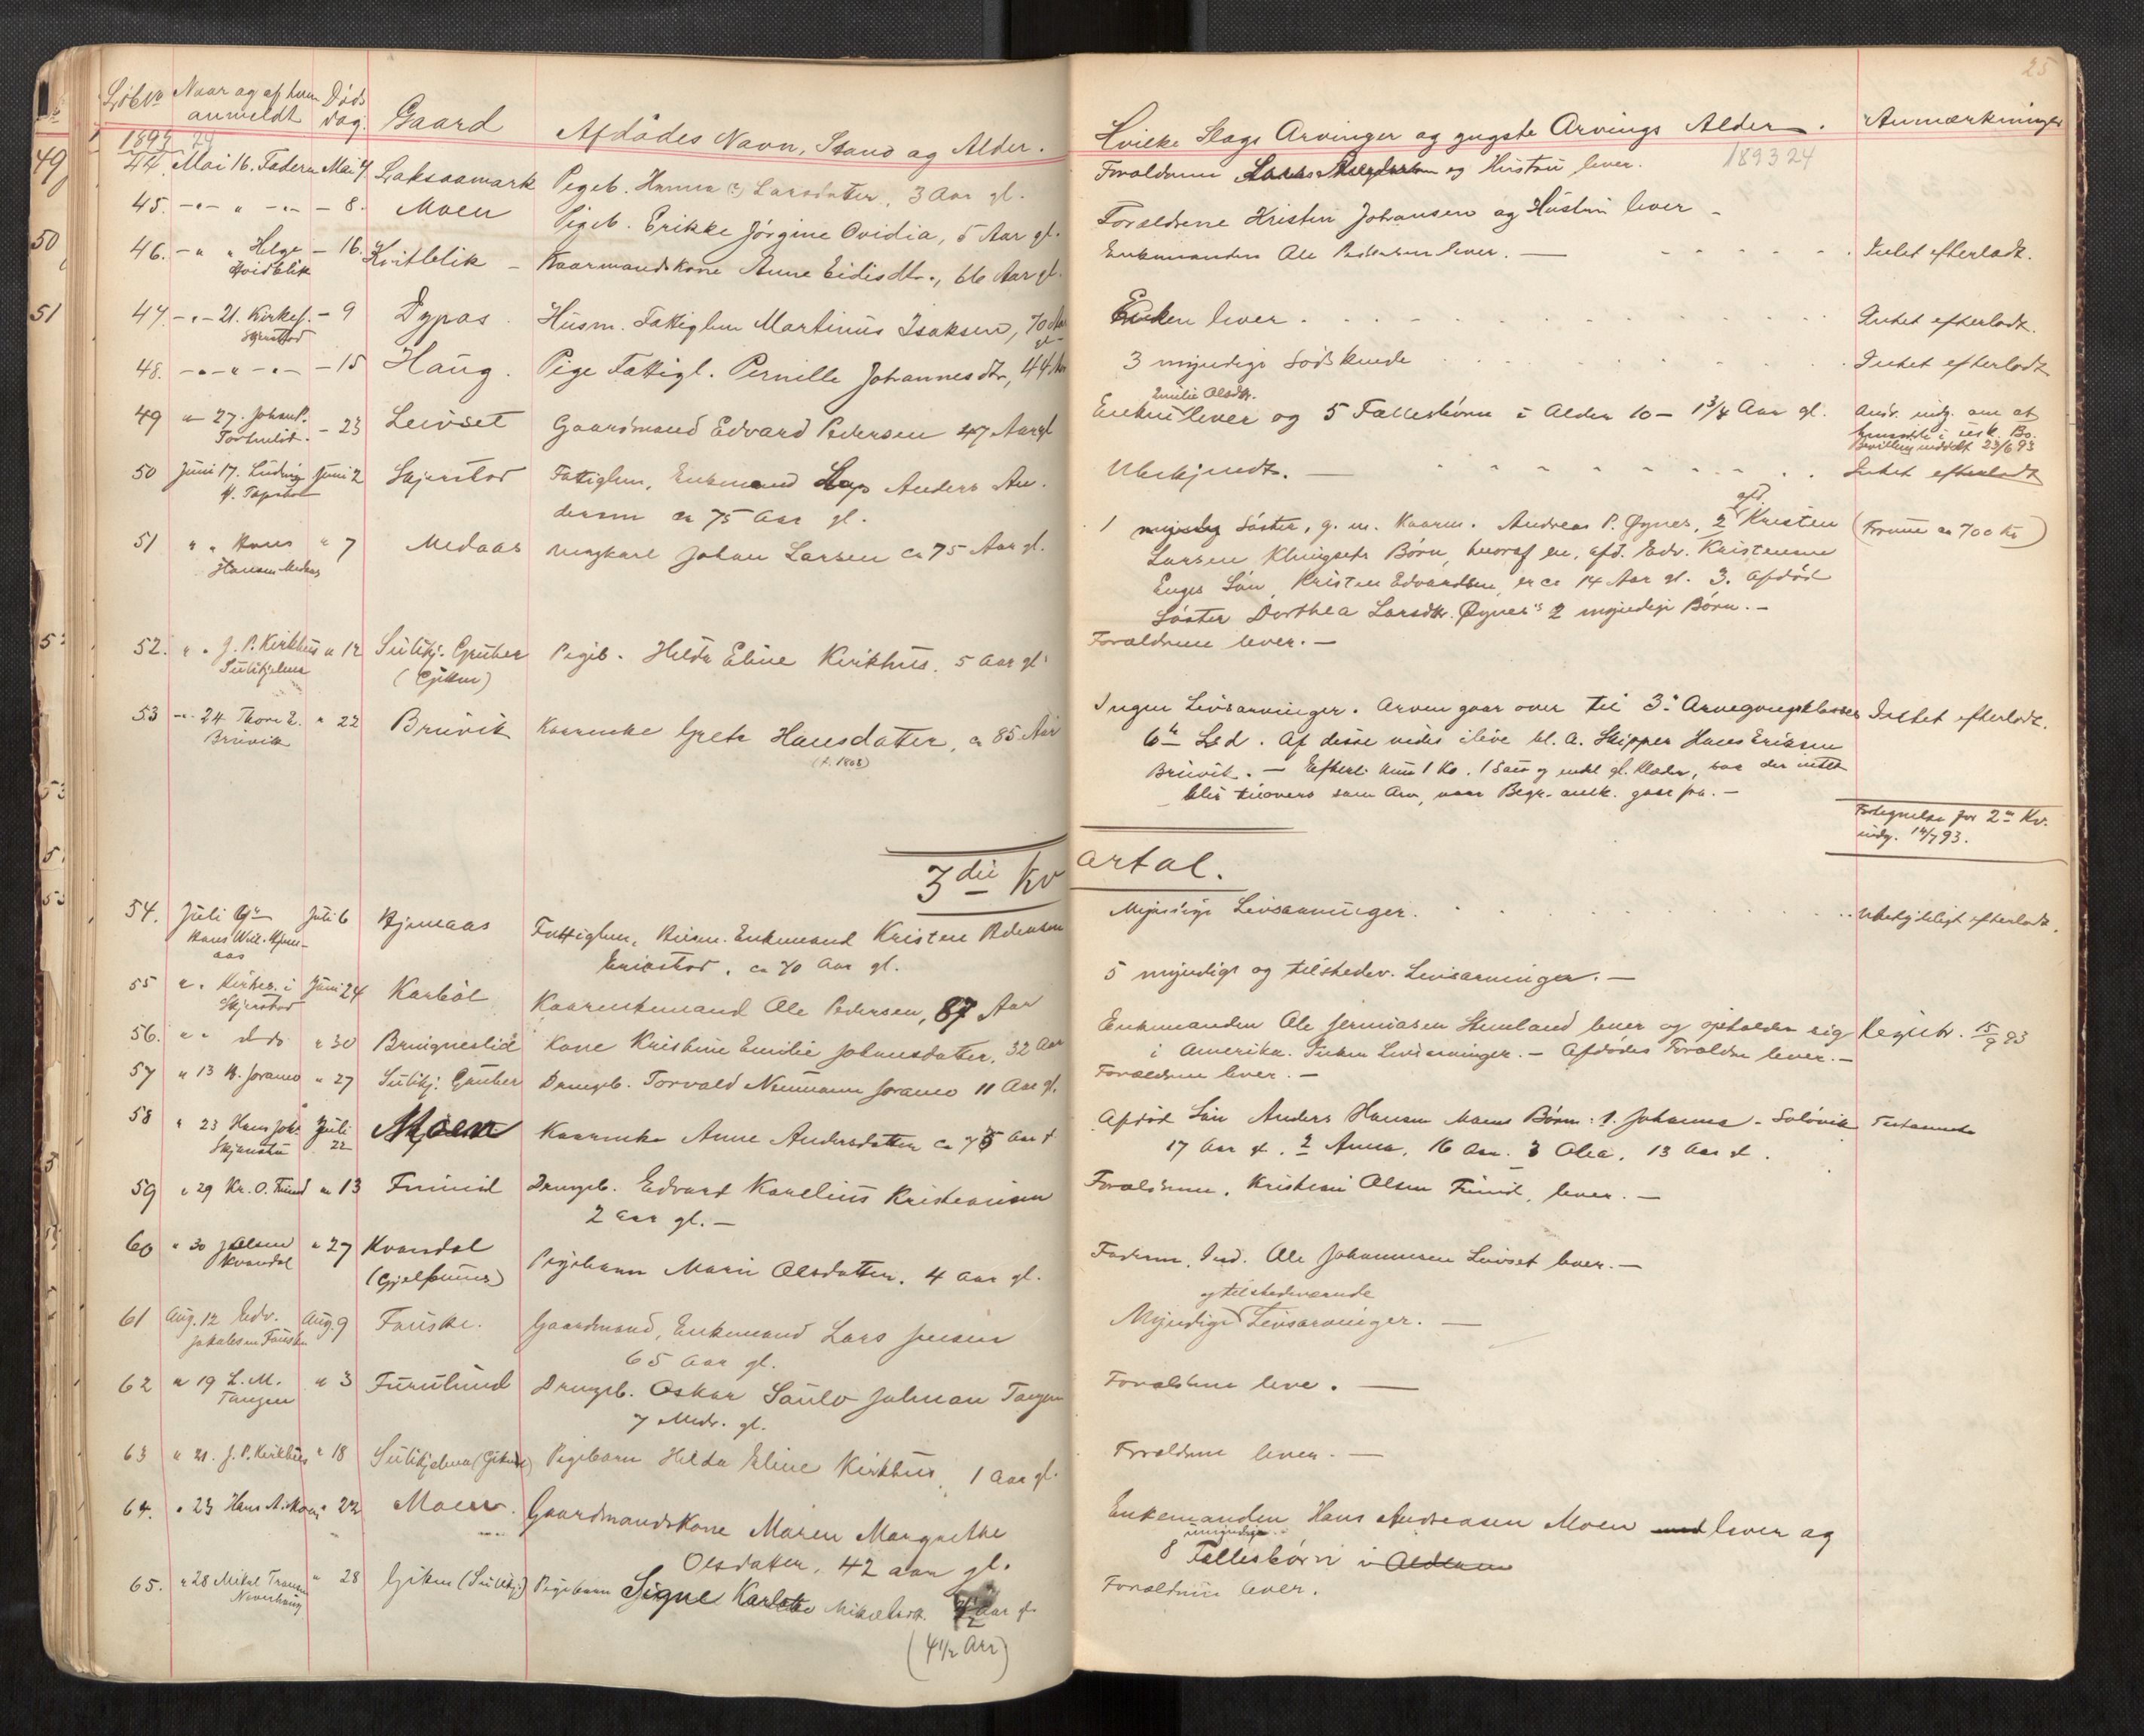 25
Løb No Naar og af hvem anmeldt Døds dag. Gaard Afdødes Navn, Stand og Alder.
Hvilke Slags Arvinger og yngste Arvings Alder. Anmærkninger
1893 24
1893 24
44. Mai 16. Faderen Mai 7. Laksaamark Pigeb. Hanna (?) Larsdatter, 3 Aar gl.
Forældrene og Hustru lever.
45. -"- " -"- - 8. Moen Pigeb. Erikke Jørgine Ovidia, 5 Aar gl.
Forældrene Kristen Johansen og Hustru lever -
46. -" " Helge - 16. Kvitblik - Kaarmandskone Anne Eidisdtr., 66 Aar gl.
Hvidblik
Enkemanden Ole Pedersen lever. — Intet efterladt.
47. -"- 21. Kirkes. - 9 Dypas. Husm. Fattiglem Martinus Isaksen, 70 Aar
Skjerstad gl-
Enken lever. Intet efterladt.
48. -"- " -"- - 15 Haug. Pige Fattigl. Pernille Johannesdtr, 44 Aar
3 myndige Södskende Intet efterladt
49 " 27. Johan P. - 23 Leivset Gaardmand Edvard Pedersen 47 Aar gl
Emilie Olsdtr.
Enken lever og 5 Fællesbörn i Alder 10 - 1 3/4 Aar gl. Andr. indg. om at
i usk. Bo.
Bevilling 23/6 93
50 Juni 17. Ludvig Juni 2 Skjerstad Fattiglem, Enkemand Lap Anders An-
dersen ca 75 Aar gl.
Ubekjendt. — Intet efterladt
51 " " Hans " 7 Medaas Ungkarl Johan Larsen ca 75 Aar gl.
Hansen Medaas
1 myndig Söster, g. m. Kaarm. Andreas P. Öynes, 2 afd. Kristen (Formue ca 700 Kr)
Larsen Klungsets Börn, hvoraf en, afd. Edv. Kristensen
Enges Sön, Kristen Edvardsen, er ca 14 Aar gl. 3. Afdöd
Söster Dorthea Larsdtr. Öynes's 2 myndige Börn. -
52. " " J. P. Kirkhus " 12 Sulitj. Gruber Pigeb. Hilda Eline Kirkhus. 5 Aar gl.
Sulitjelma (Gjiken)
Forældrene lever. -
53 -"- 24 Thore E. " 22 Bruvik Kaarenke Grete Hansdatter, ca 85 Aar
Bruvik (f. 1808)
Ingen Livsarvinger. Arven gaar over til 3. Arvegangsklasses Intet efterladt.
6te Led. Af disse vides ilive bl. a. Skipper Hans Eriksen
Bruvik. - Efterl. kun 1 Ko. 1 Sau og endel gl. Klæder, saa der intet
blir tilovers som Arv, naar Begr. omk. gaar fra. -
Fortegnelse for 2et Kv.
indg. 14/7 93.
3die Kvartal.
54. Juli Juli 6 Hjemaas Fattiglem, Husm. Enkemand Kristen Pedersen
Hans Wil. Hjem-
aas
Erikstad, ca 70 Aar gl.
Myndige Livsarvinger. Ubetydeligt efterladt.
55 ". Kirkes. i Juni 24 Karböl Kaarenkemand Ole Pedersen, 87 Aar
Skjerstad
5 myndige og tilstedev. Livsarvinger. -
56. " " do " 30 Kone Kristine Emilie Johansdatter, 32 Aar
Enkemanden Ole Jermiasen Stenland lever og opholder sig Registr. 15/9 93
i Amerika. Ingen Livsarvinger. - Afdødes Forældre lever. -
57 " 13 Joramo " 27 Sulitj. Gruber Drengeb. Torvald Neumann Joramo 11 Aar gl.
Forældrene lever. -
58 " 23 Hans Joh. Juli Moen Kaarenke Anne Andersdatter ca 75 Aar gl
22
Afdöd Sön Anders Hansen Moens Börn: 1. Johanna - Solövik Testamente
17 Aar gl. 2 Anna, 16 Aar. 3 Olea, 13 Aar gl.
59 " 29 Kr. O. Funid " 13 Funid Drengeb. Edvard Karelius Kristiansen
2 Aar gl. -
Forældrene, Kristian Olsen Funid, lever. -
60 " 30 J. Olsen " 27 Kvandal Pigebarn Marie Olsdatter, 4 Aar gl.
Kvandal (Gjelfaunes)
Faderen, Ind. Ole Johannesen Leivset lever. -
61 Aug. 12 Edv. Aug. 9 Fauske. Gaardmand, Enkemand Lars Jensen
Jakobsen Fauske 65 Aar gl.
og tilstedeværende
Myndige Livsarvinger. —
62 " 19 L. M. " 3 Furulund Drengeb. Oskar Saulo Johnan Tangen
Tangen 7 Mdr. gl.
Forældrene leve. —
63 " 21. J. P. Kirkhus " 18 Sulitjelma (Gjiken) Pigebarn Hilda Eline Kirkhus, 1 Aar gl.
Forældrene lever. -
64. " 23 Hans A. Moen " 22 Moen. Gaardmandskone Maren Margrethe
Olsdatter, 42 aar gl.
Enkemanden Hans Andreasen Moen med lever og
umyndige
8 Fællesbörn i Alderen
65. " 28 Mikal " 28 Gjiken (Sulitj.) Pigebarn Signe Karlotte Mikalsdt. 4 1/2 Aar gl.
(4 1/2 Aar)
Forældrene lever.
49
50
51